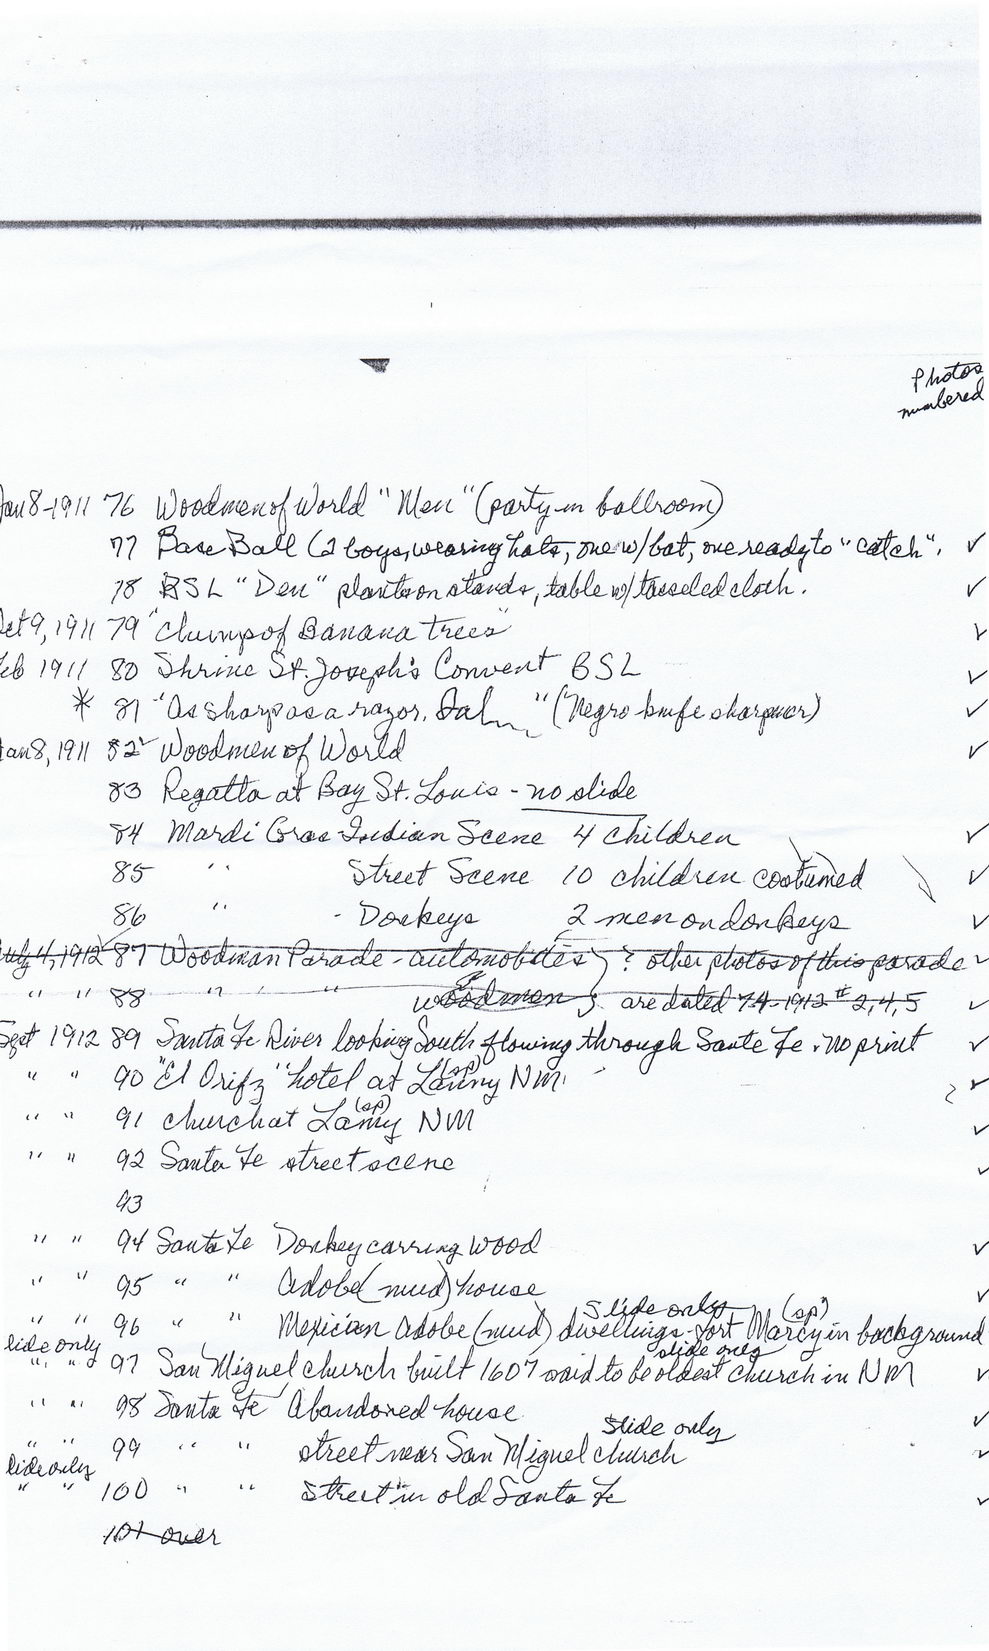 Photos
numbered
Jan 8-1911 76 Woodmen of World "Men" (party in ballroom)
77 Base Ball (2 boys, wearing hats, one w/ bat, one ready to "catch". ✓
78 BSL "Den" plants on stands, table w/ tasseled cloth. ✓
Oct 9, 1911 79 "Clump of Banana Trees" ✓
Feb 1911 80 Shrine St. Joseph's Convent BSL ✓
* 81 "As sharp as a razor, " (Negro knife sharpner) ✓
Jan 8, 1911 82 Woodmen of World ✓
83 Regatta at Bay St. Louis - no slide
84 Mardi Gras Indian Scene 4 children ✓
85 " Street Scene 10 children costumed ✓
86 " - Donkeys 2 men on donkeys ✓
July 4, 1912 87 Woodman Parade - automobiles } ? other photos of this parade ✓
" " 88 " " " woodmen } are dated 7-4-1912 # 2, 4, 5 ✓
Sept 1912 89 Santa Fe River looking South flowing through Sante Fe. no print ✓
" " 90 "El Ortiz" hotel at Lamy (sp) NM. ✓
" " 91 church at Lamy (sp) NM ✓
" " 92 Santa Fe street scene ✓
93
" " 94 Santa Fe Donkey carring wood ✓
" " 95 " " Adobe (mud) house ✓
slide only (sp)
" " 96 " " Mexician Adobe (mud) dwellings - Fort Marcy in background
lide only slide only
" " 97 San Miguel church built 1607 said to be oldest church in NM ✓
" " 98 Santa Fe Abandoned house ✓
slide only
" " 99 " " street near San Miguel church ✓
lide only
" " 100 " " street in old Santa Fe ✓
101 over